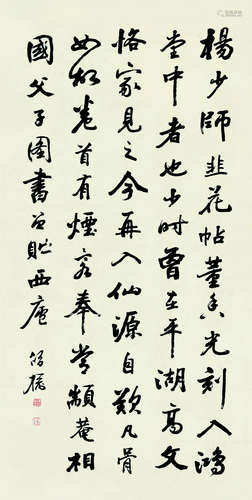 楊少師韭花帖董香光刻入鴻
堂中者也少時曾在平湖高文
恪家見之今再入仙源自歎凡骨
如故卷首有煙客奉常顓菴相
國父子圖書曾貯西廬